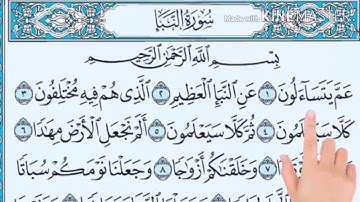 Made with KINEMASTER
سُورَةُ النَّبَإِ
بِسْمِ اللَّهِ الرَّحْمَٰنِ الرَّحِيمِ
عَمَّ يَتَسَاءَلُونَ ١ عَنِ النَّبَإِ الْعَظِيمِ ٢ الَّذِي هُمْ فِيهِ مُخْتَلِفُونَ ٣
كَلَّا سَيَعْلَمُونَ ٤ ثُمَّ كَلَّا سَيَعْلَمُونَ ٥ أَلَمْ نَجْعَلِ الْأَرْضَ مِهَٰدًا ٦
٧ وَخَلَقْنَاكُمْ أَزْوَٰجًا ٨ وَجَعَلْنَا نَوْمَكُمْ سُبَاتًا